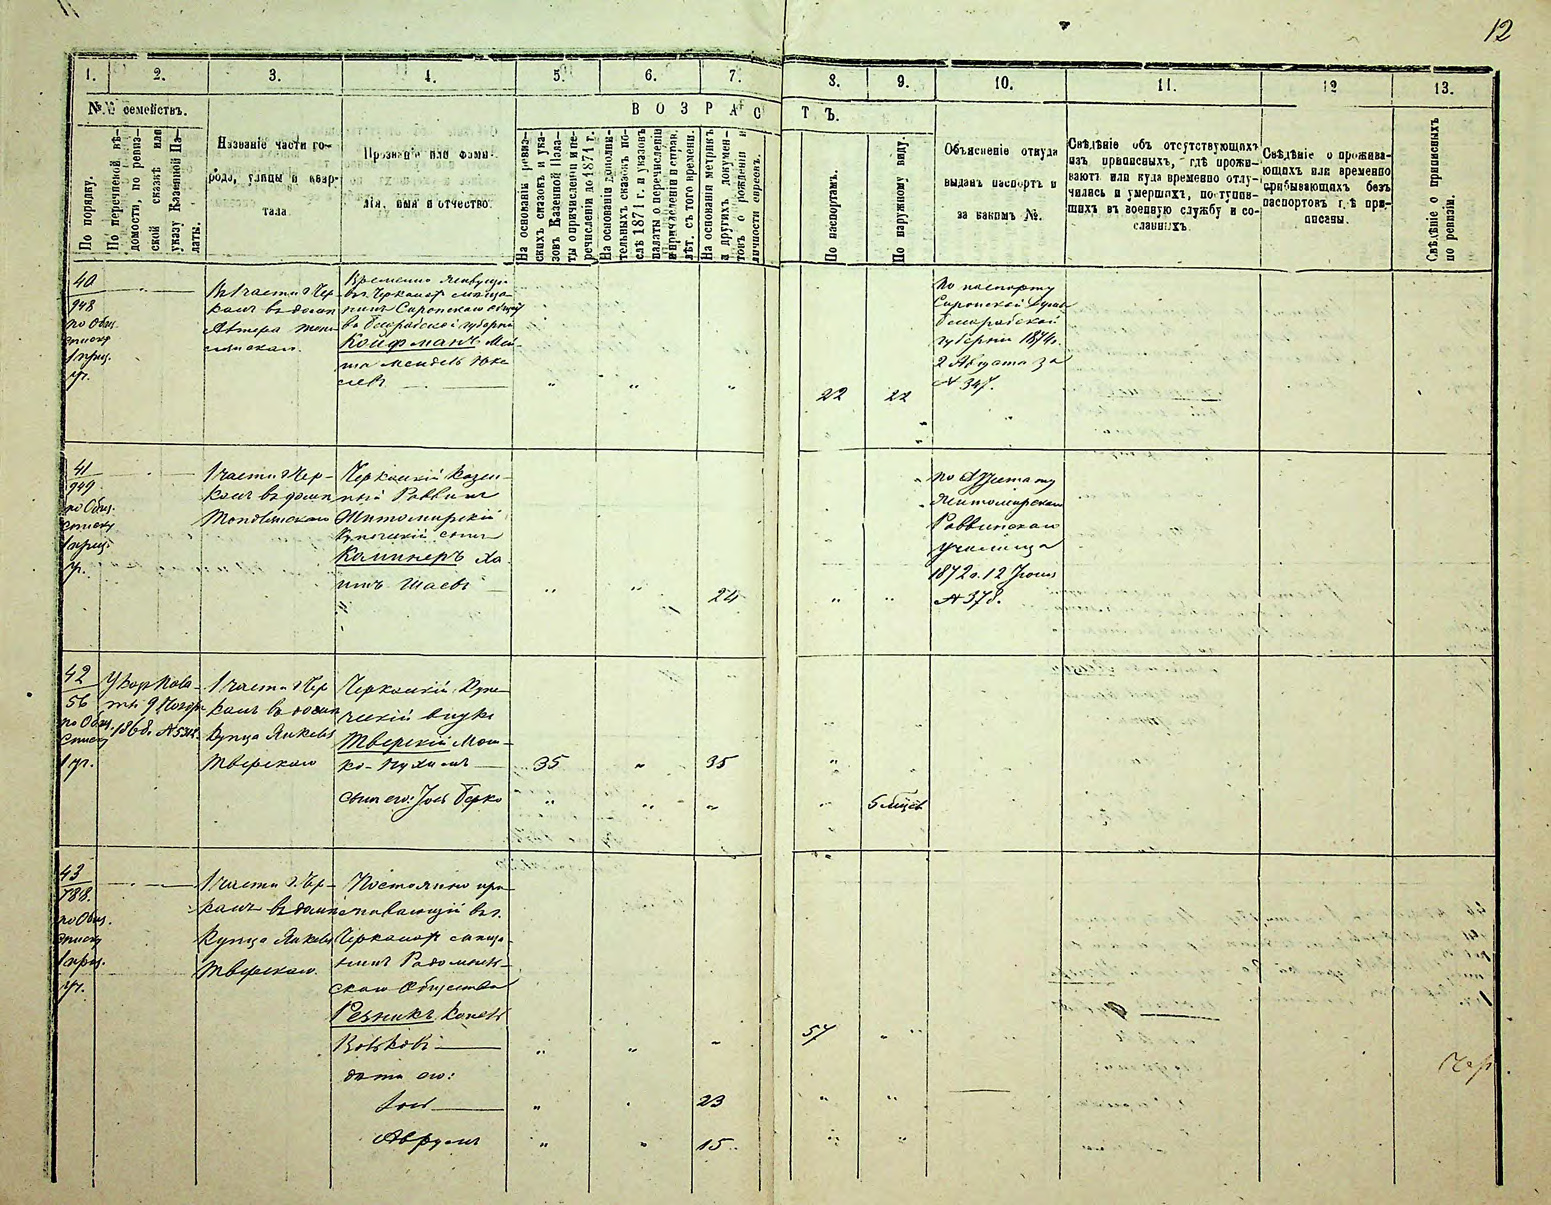 12
1. 2. 3. 4. 5. 6. 7. 8. 9. 10. 11. 12 13.
№№ семействъ.
По порядку.
По перечневой вѣ-
домости, по ревиз-
ской сказкѣ или
указу Казенной Па-
латы.
Названіе части го-
рода, улицы и квар-
тала
Прозваніе или фами-
лія, имя и отчество.
ВОЗРАСТЪ.
На основаніи ревиз-
скихъ сказокъ и ука-
зовъ Казенной Пала-
ты о причисленіи и пе-
речисленіи до 1871 г.
На основаніи дополни-
тельныхъ сказокъ по-
слѣ 1871 г. и указовъ
палаты о перечисленіи
и причисленіи и справ.
лѣт. съ того времени.
На основаніи метрикъ
и другихъ докумен-
товъ о рожденіи и
личности евреевъ.
По паспортамъ.
По наружному виду.
Объясненіе откуда
выданъ паспортъ и
за какимъ №.
Свѣдѣніе объ отсутствующихъ
изъ приписныхъ, гдѣ прожи-
ваютъ или куда временно отлу-
чились и умершихъ, поступив-
шихъ въ военную службу и со-
сланныхъ
Свѣдѣніе о прожива-
ющихъ или временно
прибывающихъ безъ
паспортовъ гдѣ при-
писаны.
Свѣдѣніе о приписныхъ
по ревизіи.
40
948
по Общ.
списку
1 приз.
уч.
В 1 части г. Чер-
касъ въ домѣ
Временно живущій
въ г. Черкасахъ мѣща-
нинъ Сорокскаго общес
ва Бесарабской губерніи
Койфманъ Мой-
ша Мендель Юке
левъ
" " " 22 22
По паспорту
Сорокской Думы
Бесарабской
губерніи 1874 г.
2 Августа за
№ 347.
41
949
по Общ.
списку
1 приз.
уч.
1 части г. Чер-
касъ въ домѣ
Черкаскій Казен-
ный Раввинъ
Житомирскій
Купеческій сынъ
Каминеръ Ха-
имъ Шаевъ
" " 24 " "
по Аттестату
Житомирскаго
Раввинскаго
училища
1872 г. 12 Іюня
№ 378.
42
56
по Общ.
списку
1 уч.
Указ Пала-
ты 9 Ноября
1868 г. №
1 части г. Чер
касъ въ домѣ
Купца Янкеля
Тверскаго
Черкаскій Купе-
ческій внукъ
Тверскій Мош-
ко-Нухимъ
35 " 35 "
сынъ его: Іось Берко
" " " " 5 мѣсяцъ
43
788.
по Общ.
списку
1 приз.
уч.
1 части г. Чер-
касъ въ домѣ
Купца Янкеля
Тверскаго.
Постоянно про-
живающій въ г.
Черкасахъ мѣща-
нинъ Радомысль-
скаго Общества
Резникъ Копель
Вольковъ
" " " 57 "
дѣти его:
Іось " 23 " "
Аврумъ " " 15 " "
Чер.